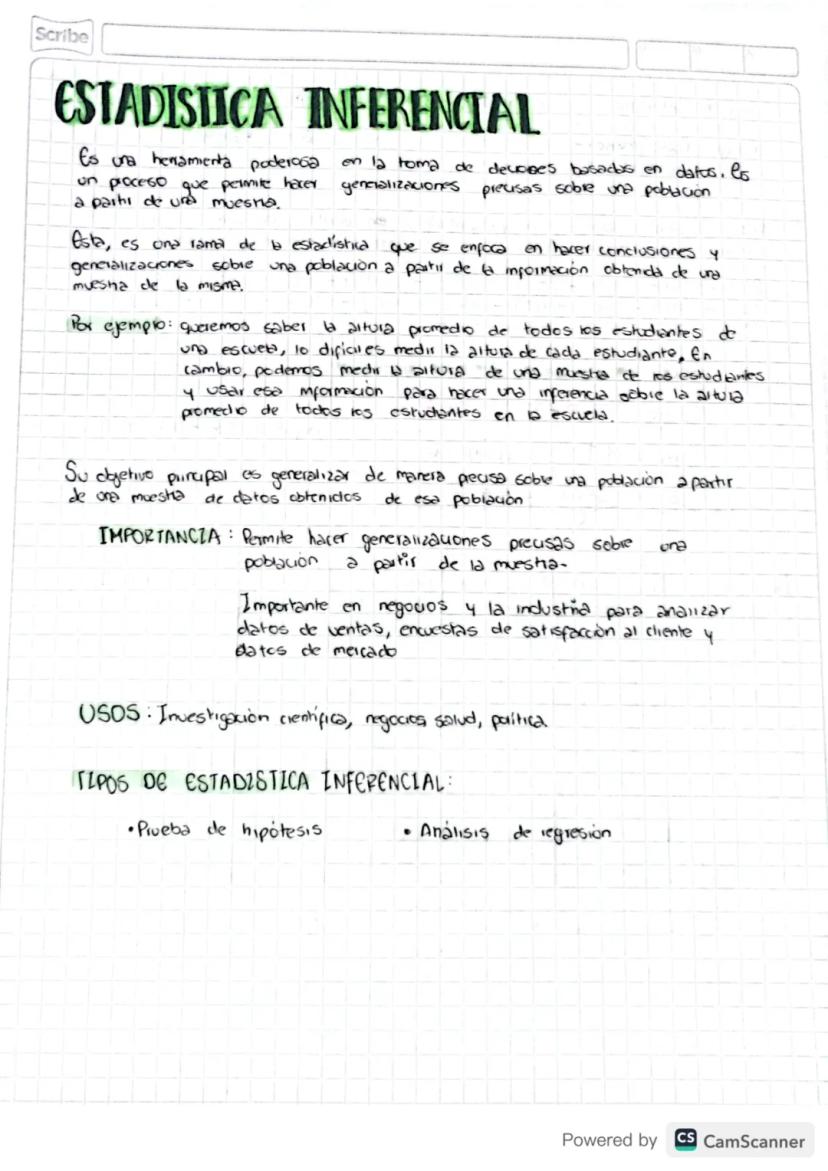 Scribe
ESTADISTICA INFERENCIAL
Es una herramienta poderosa en la toma de decisiones basadas en datos. Es
un proceso que permite hacer generalizaciones precisas sobre una población
a partir de una muestra.
Esta, es una rama de la estadística que se enfoca en hacer conclusiones y
generalizaciones sobre una población a partir de la información obtenida de una
muestra de la misma.
Por ejemplo: queremos saber la altura promedio de todos los estudiantes de
una escuela, lo dificil es medir la altura de cada estudiante, En
cambio, podemos medir la altura de una muestra de los estudiantes
y usar esa información para hacer una inferencia sobre la altura
promedio de todos los estudiantes en la escuela.
Su objetivo principal es generalizar de manera precisa sobre una población a partir
de una muestra de datos obtenidos de esa población
IMPORTANCIA: Permite hacer generalizaciones precisas sobre una
población a partir de la muestra.
Importante en negocios y la industria para analizar
datos de ventas, encuestas de satisfacción al cliente y
datos de mercado
USOS: Investigación científica, negocios salud, política
TIPOS DE ESTADISTICA INFERENCIAL:
• Prueba de hipótesis • Análisis de regresión
Powered by CS CamScanner